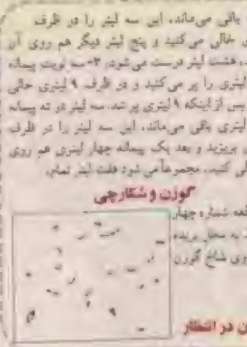 باقی می‌ماند، این سه لیتر را در ظرف
خالی می‌کنید و پنج لیتر دیگر هم روی آن
هشت لیتر درست می‌شود. ۳- سه نوبت پیمانه
لیتری را پر می کنید و در ظرف ۹ لیتری خالی
پس از اینکه ۹ لیتری پر شد. سه لیتر در ته پیمانه
لیتری باقی می‌ماند، این سه لیتر را در ظرف
بریزید و بعد یک پیمانه چهار لیتری هم روی
کنید. مجموعاً می شود هفت لیتر تمام.
گوزن و شکارچی
شماره چهار
به محل بریده
روی شاخ گوزن
در انتظار